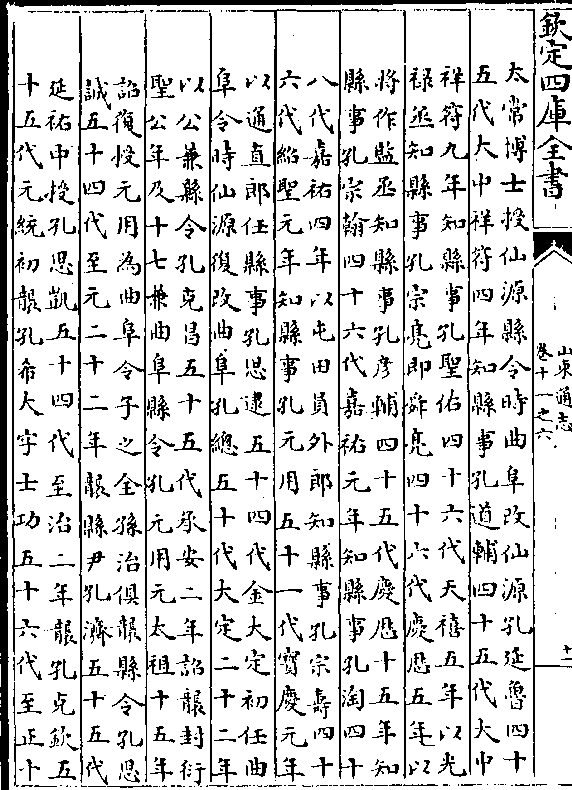 欽定四庫全書
山東通志
卷十一之六
十一
太常博士授仙源縣令時曲阜改仙源孔延魯四十
五代大中祥符四年知縣事孔道輔四十五代大中
祥符九年知縣事孔聖佑四十六代天禧五年以光
祿丞知縣事孔宗亮即舜亮四十六代慶厯五年以
將作監丞知縣事孔彥輔四十五代慶厯十五年知
縣事孔宗翰四十六代嘉祐元年知縣事孔淘四十
八代嘉祐四年以屯田員外郎知縣事孔宗壽四十
六代紹聖元年知縣事孔元用五十一代寳慶元年
以通直郎任縣事孔思逮五十四代金大定初任曲
阜令時仙源復改曲阜孔總五十代大定二十二年
以公兼縣令孔克昌五十五代承安二年詔襲封衍
聖公年及十七兼曲阜縣令孔元用元太祖十五年
詔復授元用為曲阜令子之全孫治俱襲縣令孔思
誠五十四代至元二十二年襲縣尹孔濟五十五代
延祐中授孔思凱五十四代至治二年襲孔克欽五
十五代元統初襲孔希大字士功五十六代至正十